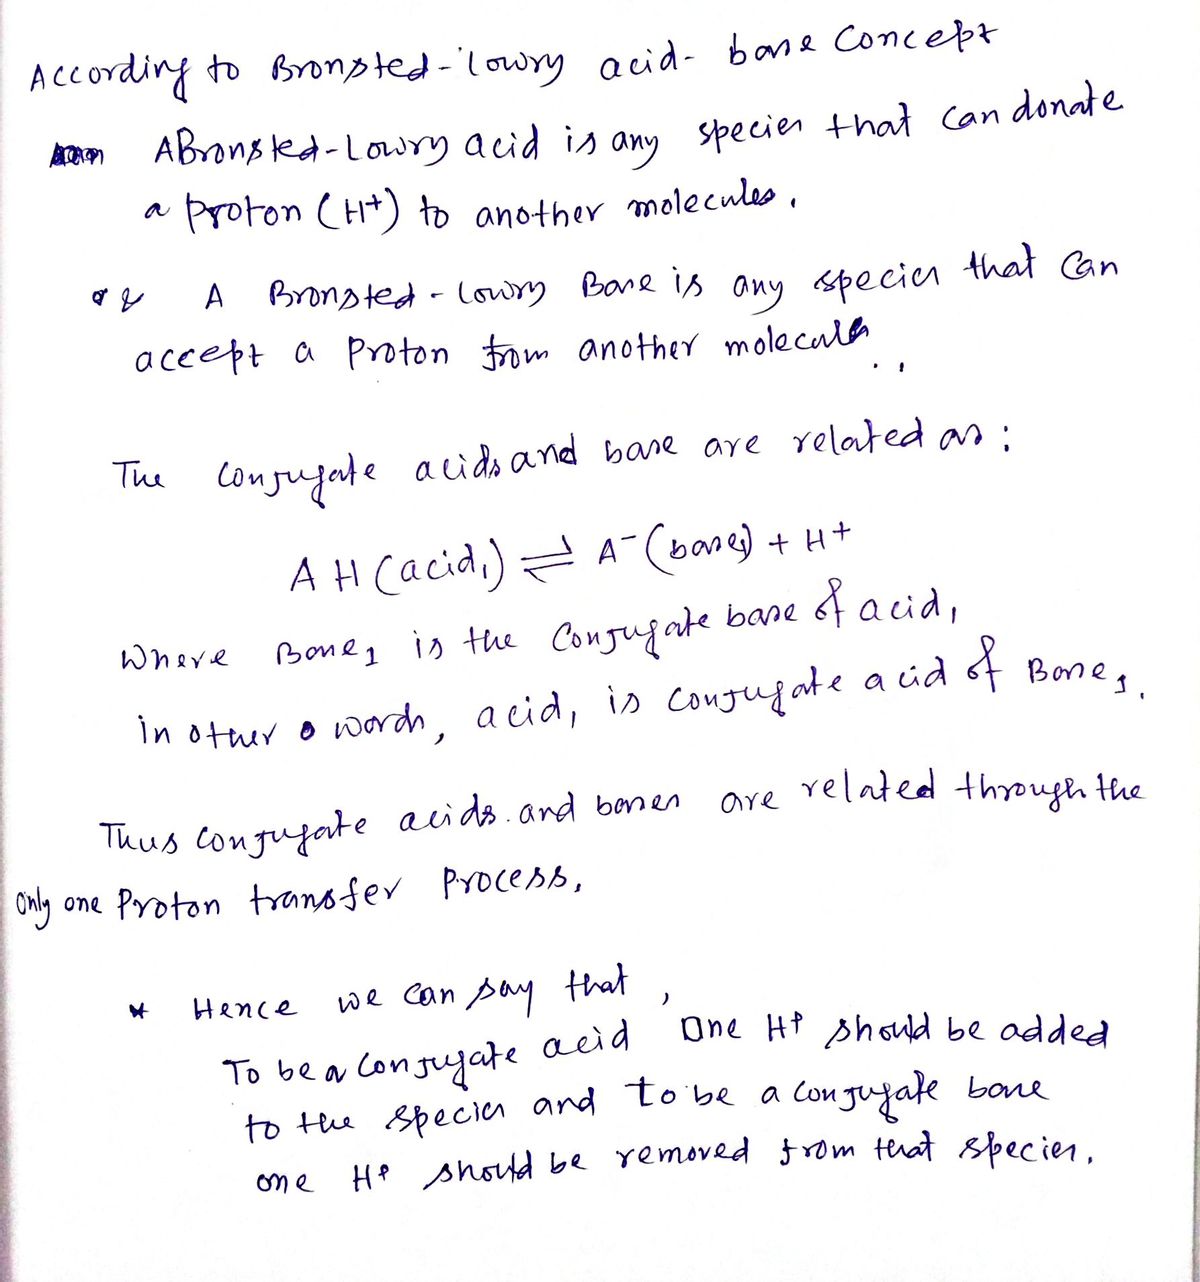 According to Bronsted-Lowry acid-base Concept
A Bronsted-Lowry acid is any species that can donate
a proton (H+) to another molecules.
& A Bronsted-Lowry Base is any species that can
accept a proton from another molecule.
The Conjugate acids and base are related as:
AH (acid₁) ⇌ A⁻ (base₁) + H+
Where Base₁ is the Conjugate base of acid₁
in other words, acid₁ is conjugate acid of Base₁.
Thus conjugate acids and bases are related through the
only one Proton transfer Process.
* Hence we can say that,
To be a Conjugate acid One H+ should be added
to the species and to be a conjugate base
one H+ should be removed from that species.